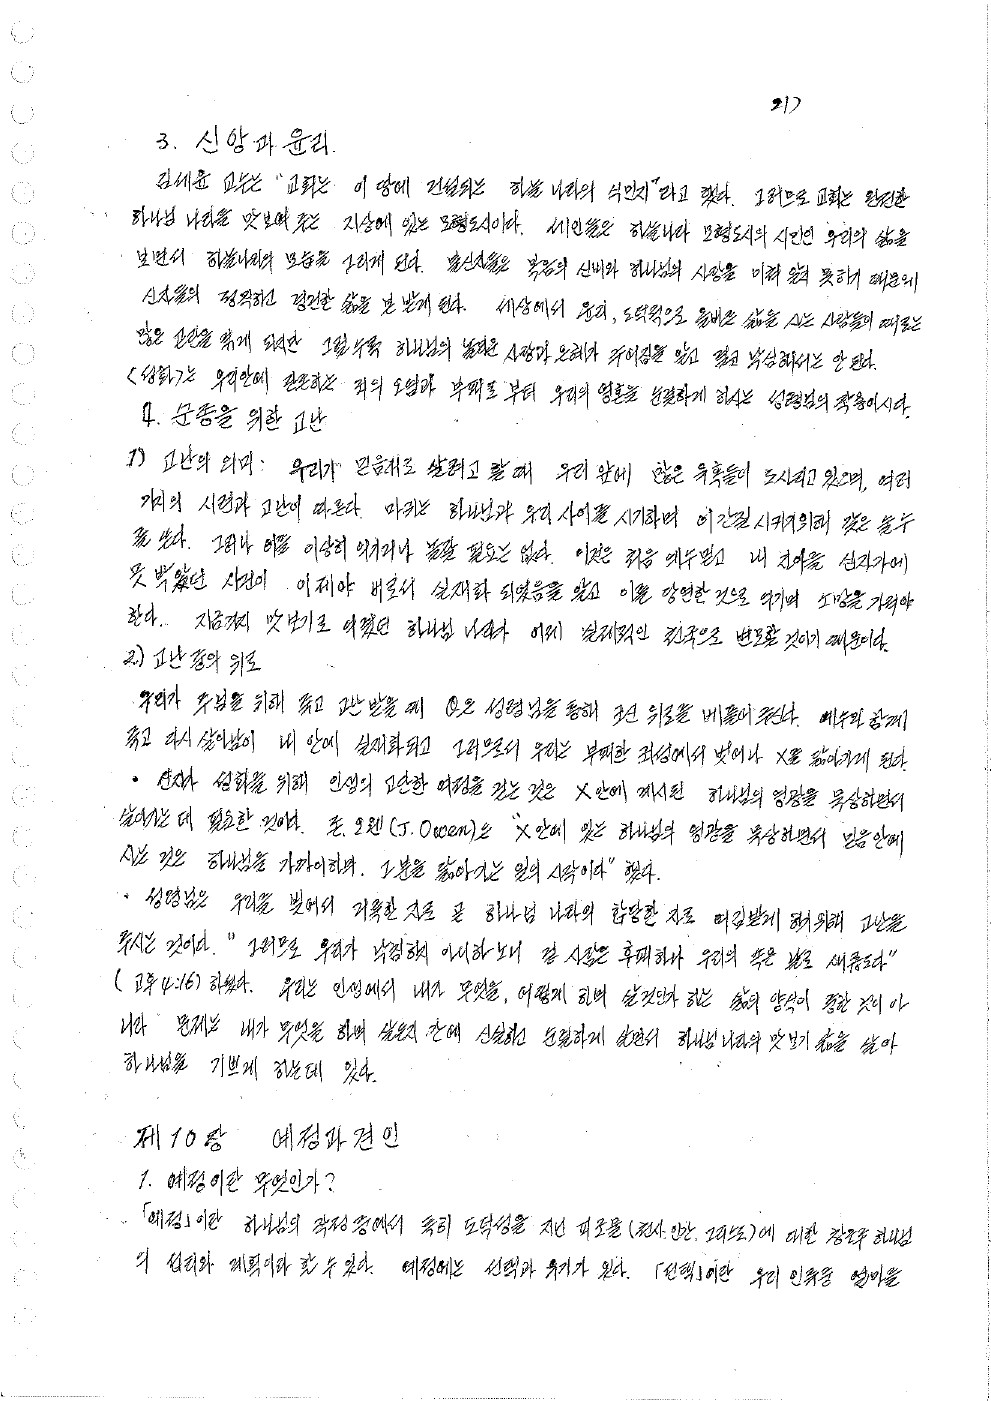 217
3. 신앙과 윤리.
김세윤 교수는 "교회는 이 땅에 건설되는 하늘 나라의 식민지"라고 했다. 그러므로 교회는 완전한
하나님 나라를 맛보여 주는 지상에 있는 모형도시이다. 세인들은 하늘나라 모형도시의 시민인 우리의 삶을
보면서 하늘나라의 모습을 그리게 된다. 불신자들은 복음의 신비와 하나님의 사랑을 미처 알지 못하기 때문에
신자들의 정직하고 경건한 삶을 본 받게 된다. 세상에서 윤리, 도덕적으로 올바른 삶을 사는 사람들이 때로는
많은 고난을 겪게 되지만 그럴수록 하나님의 놀라운 사랑과 은혜가 주어짐을 알고 결코 낙심해서는 안 된다.
<성화>는 우리안에 잔존하는 죄의 오염과 부패로 부터 우리의 영혼을 순결하게 하시는 성령님의 작용이시다.
4. 순종을 위한 고난
1) 고난의 의미: 우리가 믿음대로 살려고 할 때 우리 앞에 많은 유혹들이 도사리고 있으며, 여러
가지의 시련과 고난이 따른다. 마귀는 하나님과 우리 사이를 시기하며 이간질 시키기위해 갖은 술수
를 쓴다. 그러나 이를 이상히 여기거나 놀랄 필요는 없다. 이것은 처음 예수믿고 내 자아를 십자가에
못 박았던 사건이 이제야 비로서 실재화 되었음을 알고 이를 당연한 것으로 여기며 소망을 가져야
한다. 지금까지 맛보기로 여겼던 하나님 나라가 이제 실제적인 천국으로 변모할 것이기 때문이다.
2) 고난 중의 위로
우리가 주님을 위해 죽고 고난 받을 때 성령님을 통해 크신 위로를 베풀어 주신다. 예수와 함께
죽고 다시 살아남이 내 안에 실재화되고 그러므로서 우리는 부패한 죄성에서 벗어나 X를 닮아가게 된다.
• 신자가 성화를 위해 인생의 고단한 여정을 걷는 것은 X안에 계시된 하나님의 영광을 묵상하면서
살아가는 데 필요한 것이다. 존.오웬(J.Owen)은 "X안에 있는 하나님의 영광을 묵상하면서 믿음안에
사는 것은 하나님을 가까이하며, 그분을 닮아가는 일의 시작이다" 했다.
• 성령님은 우리를 빚어서 거룩한 자로 곧 하나님 나라의 합당한 자로 여김받게 하기위해 고난을
주시는 것이다. "그러므로 우리가 낙심하지 아니하노니 겉 사람은 후패하나 우리의 속은 날로 새롭도다"
(고후4:16)하였다. 우리는 인생에서 내가 무엇을, 어떻게 하며 살것인가 하는 삶의 양식이 중한 것이 아
니라 문제는 내가 무엇을 하며 살든지 간에 신실하고 순결하게 살면서 하나님나라의 맛보기 삶을 살아
하나님을 기쁘게 하는데 있다.
제10장 예정과 견인
1. 예정이란 무엇인가?
「예정」이란 하나님의 작정 중에서 특히 도덕성을 지닌 피조물(천사.인간.그리스도)에 대한 창조주 하나님
의 섭리와 계획이라 할 수 있다. 예정에는 선택과 유기가 있다. 「선택」이란 우리 인류중 얼마를